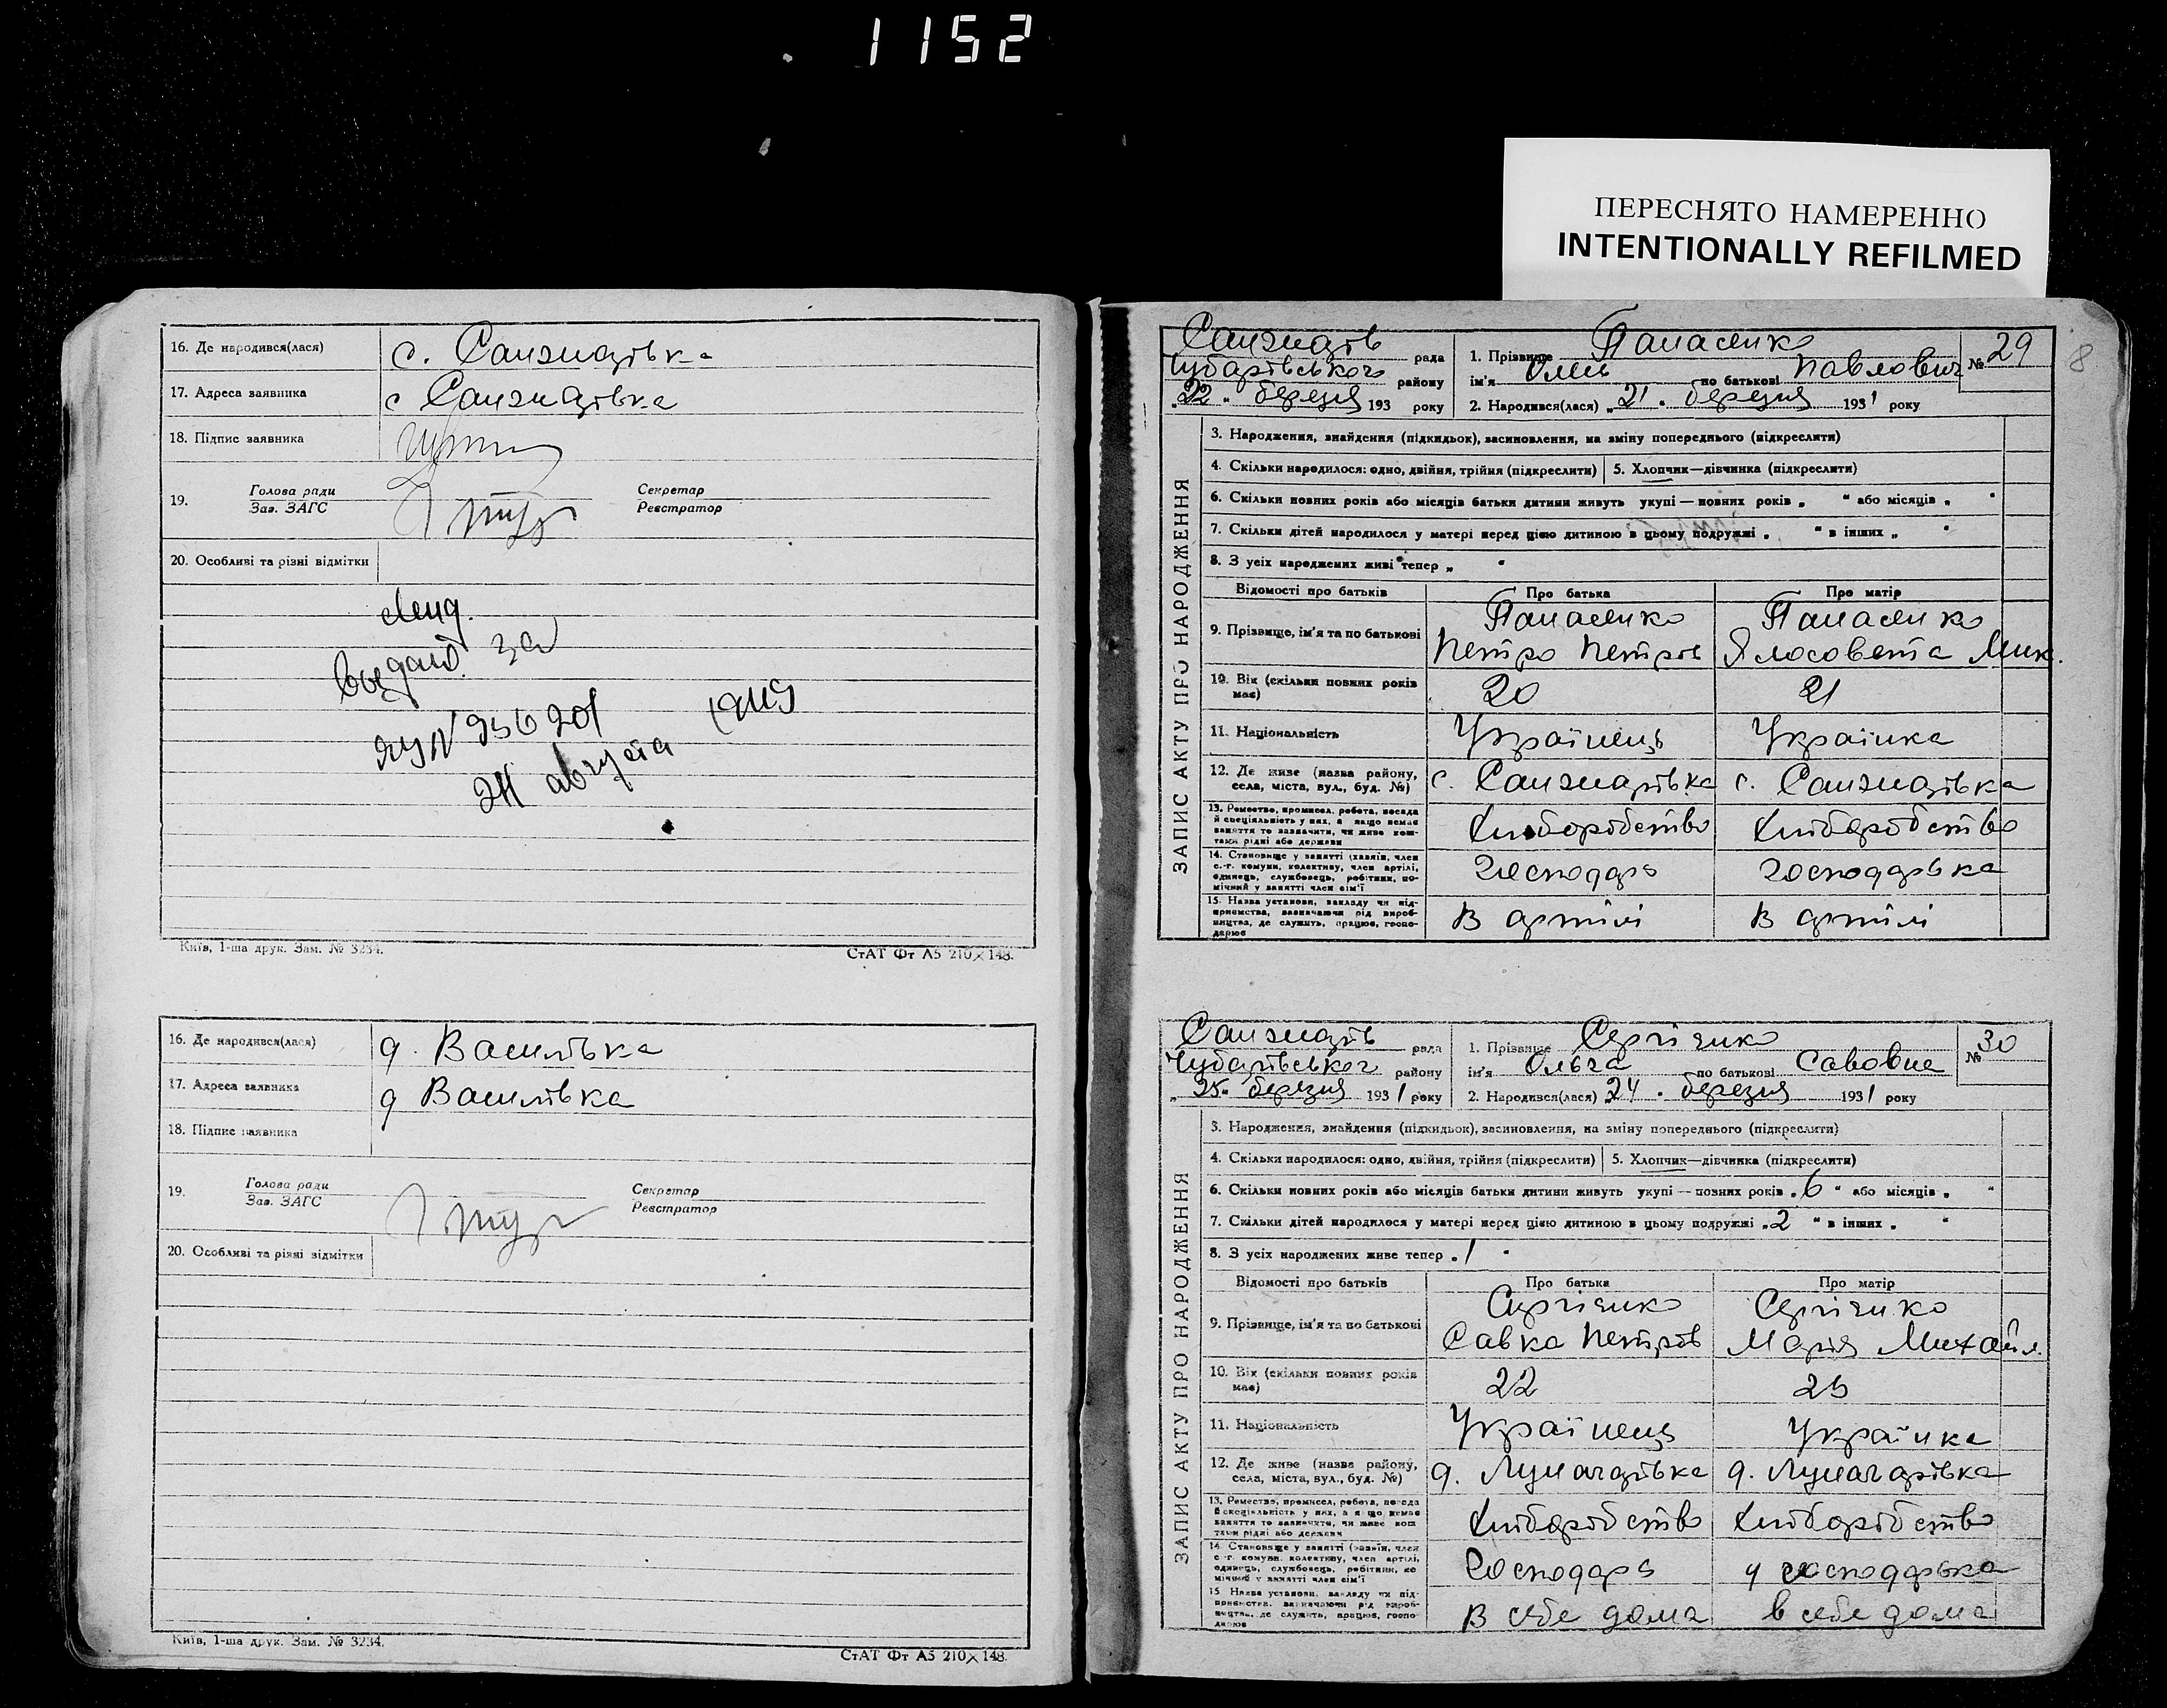 1152
ПЕРЕСНЯТО НАМЕРЕННО
INTENTIONALLY REFILMED
16. Де народився(лася) с. Санжарівка
17. Адреса заявника с Санжарівка
18. Підпис заявника
19. Голова ради Секретар
Зав. ЗАГС Реєстратор
20. Особливі та різні відмітки
24 августа
Київ, 1-ша друк. Зам. № 3234.
СтАТ Фт А5 210×148.
16. Де народився(лася) д. Василівка
17. Адреса заявника д Василівка
18. Підпис заявника
19. Голова ради Секретар
Зав. ЗАГС Реєстратор
20. Особливі та різні відмітки
Київ, 1-ша друк. Зам. № 3234.
СтАТ Фт А5 210×148.
8
ЗАПИС АКТУ ПРО НАРОДЖЕННЯ
Санжарів рада 1. Прізвище Панасенко № 29
Чубарівського району ім'я по батькові Павлович
„22" березня 193 року 2. Народився(лася) „21" березня 1931 року
3. Народження, знайдення (підкидьок), засиновлення, на зміну попереднього (підкреслити)
4. Скільки народилося: одно, двійня, трійня (підкреслити) 5. Хлопчик—дівчинка (підкреслити)
6. Скільки повних років або місяців батьки дитини живуть укупі — повних років „ " або місяців „ "
7. Скільки дітей народилося у матері перед цією дитиною в цьому подружжі „ " в інших „ "
8. З усіх народжених живі тепер „ "
Відомості про батьків Про батька Про матір
9. Прізвище, ім'я та по батькові Панасенко Панасенко
Петро Петров Ялосовета Мик.
10. Вік (скільки повних років має) 20 21
11. Національність Українець Українка
12. Де живе (назва району, села, міста, вул., буд. №) с. Санжарівка с. Санжарівка
13. Ремество, промисел, робота, посада й спеціяльність у них, а якщо немає заняття то зазначити, чи живе коштами рідні або держави Хліборобство Хліборобство
14. Становище у занятті (хазяїн, член с.-г. комуни, колективу, член артілі, одинець, службовець, робітник, помічний у занятті член сім'ї Господарь господарька
15. Назва установи, закладу чи підприємства, зазначаючи рід виробництва, де служить, працює, господарює В артілі В артілі
ЗАПИС АКТУ ПРО НАРОДЖЕННЯ
Санжарів рада 1. Прізвище Сергієнко № 30
Чубарівського району ім'я Ольга по батькові Савовна
„25" березня 1931 року 2. Народився(лася) „24" березня 1931 року
3. Народження, знайдення (підкидьок), засиновлення, на зміну попереднього (підкреслити)
4. Скільки народилося: одно, двійня, трійня (підкреслити) 5. Хлопчик—дівчинка (підкреслити)
6. Скільки повних років або місяців батьки дитини живуть укупі — повних років „6" або місяців „ "
7. Скільки дітей народилося у матері перед цією дитиною в цьому подружжі „2" в інших „ "
8. З усіх народжених живе тепер „1"
Відомості про батьків Про батька Про матір
9. Прізвище, ім'я та по батькові Сергієнко Сергієнко
Савка Петров Марія Михайл.
10. Вік (скільки повних років має) 22 25
11. Національність Українець Українка
12. Де живе (назва району, села, міста, вул., буд. №) д. Луначарівка д. Луначарівка
13. Ремество, промисел, робота, посада й спеціяльність у них, а якщо немає заняття то зазначити, чи живе коштами рідні або держави Хліборобство Хліборобство
14. Становище у занятті (хазяїн, член с.-г. комуни, колективу, член артілі, одинець, службовець, робітник, помічний у занятті член сім'ї Господарь господарька
15. Назва установи, закладу чи підприємства, зазначаючи рід виробництва, де служить, працює, господарює В себе дома в себе дома